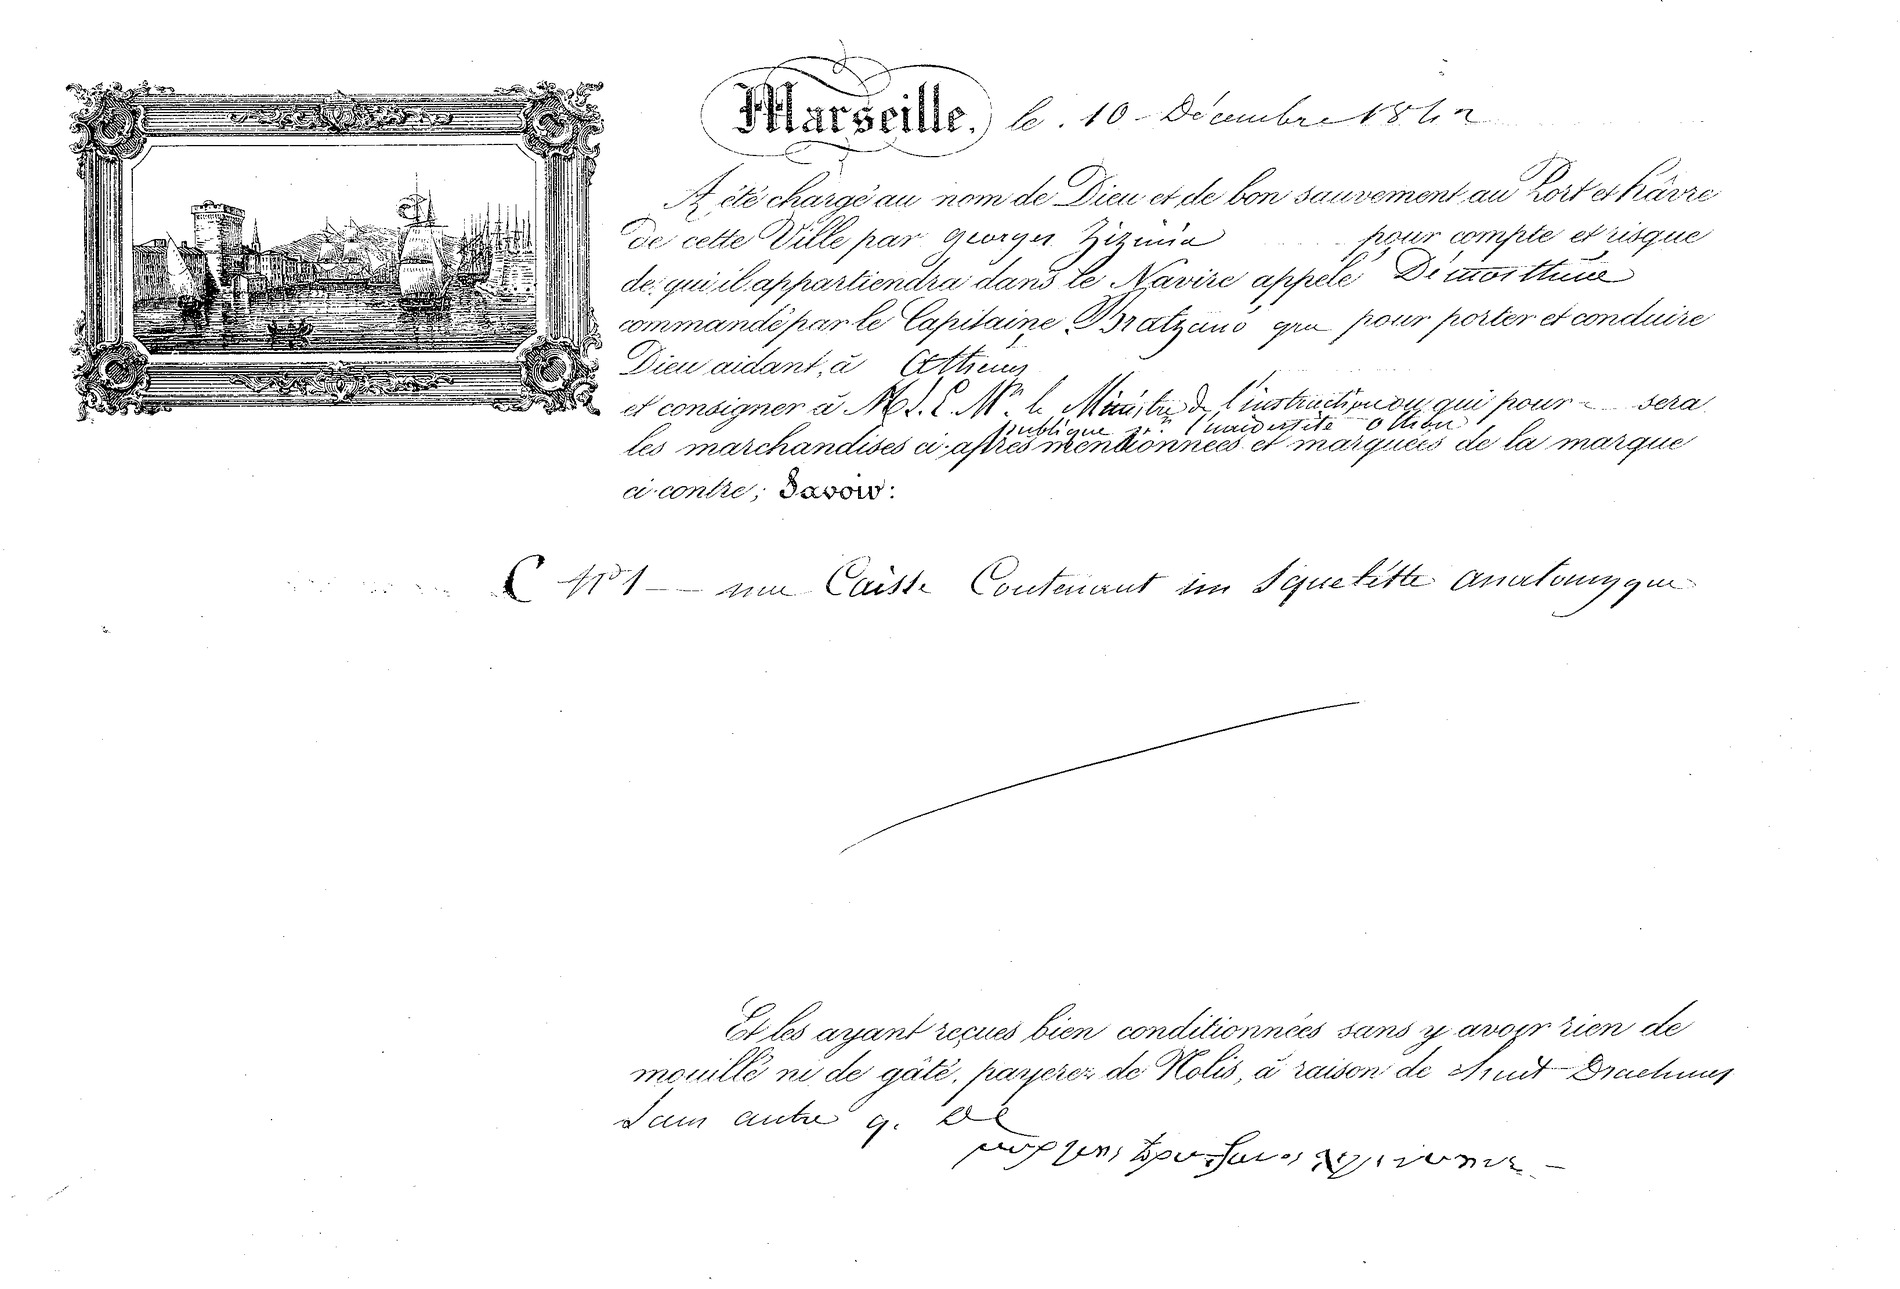 Marseille, le 10 Décembre 1842
A été chargé au nom de Dieu et de bon sauvement au Port et hâvre
de cette Ville par Georges Zizinia pour compte et risque
de qui il appartiendra dans le Navire appelé Démosthène
commandé par le Capitaine Bratzano grec pour porter et conduire
Dieu aidant, à Athènes
et consigner à le Ministre de l'instruction ou qui pour sera
publique l'université othon
les marchandises ci-après mentionnées et marquées de la marque
ci-contre; Savoir:
C N° 1 — une Caisse Contenant un Squelètte anatomyque
Et les ayant reçues bien conditionnées sans y avoir rien de
mouillé ni de gâté, payerez de Nolis, à raison de huit Drachmes
Sans autre